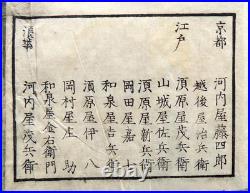 京都 河内屋藤四郎
越後屋治兵衛
江戸 須原屋茂兵衛
山城屋佐兵衛
須原屋新兵衛
岡田屋嘉七
和泉屋吉兵衛
須原屋伊八
岡村屋庄助
和泉屋金右衛門
浪華 河内屋茂兵衛